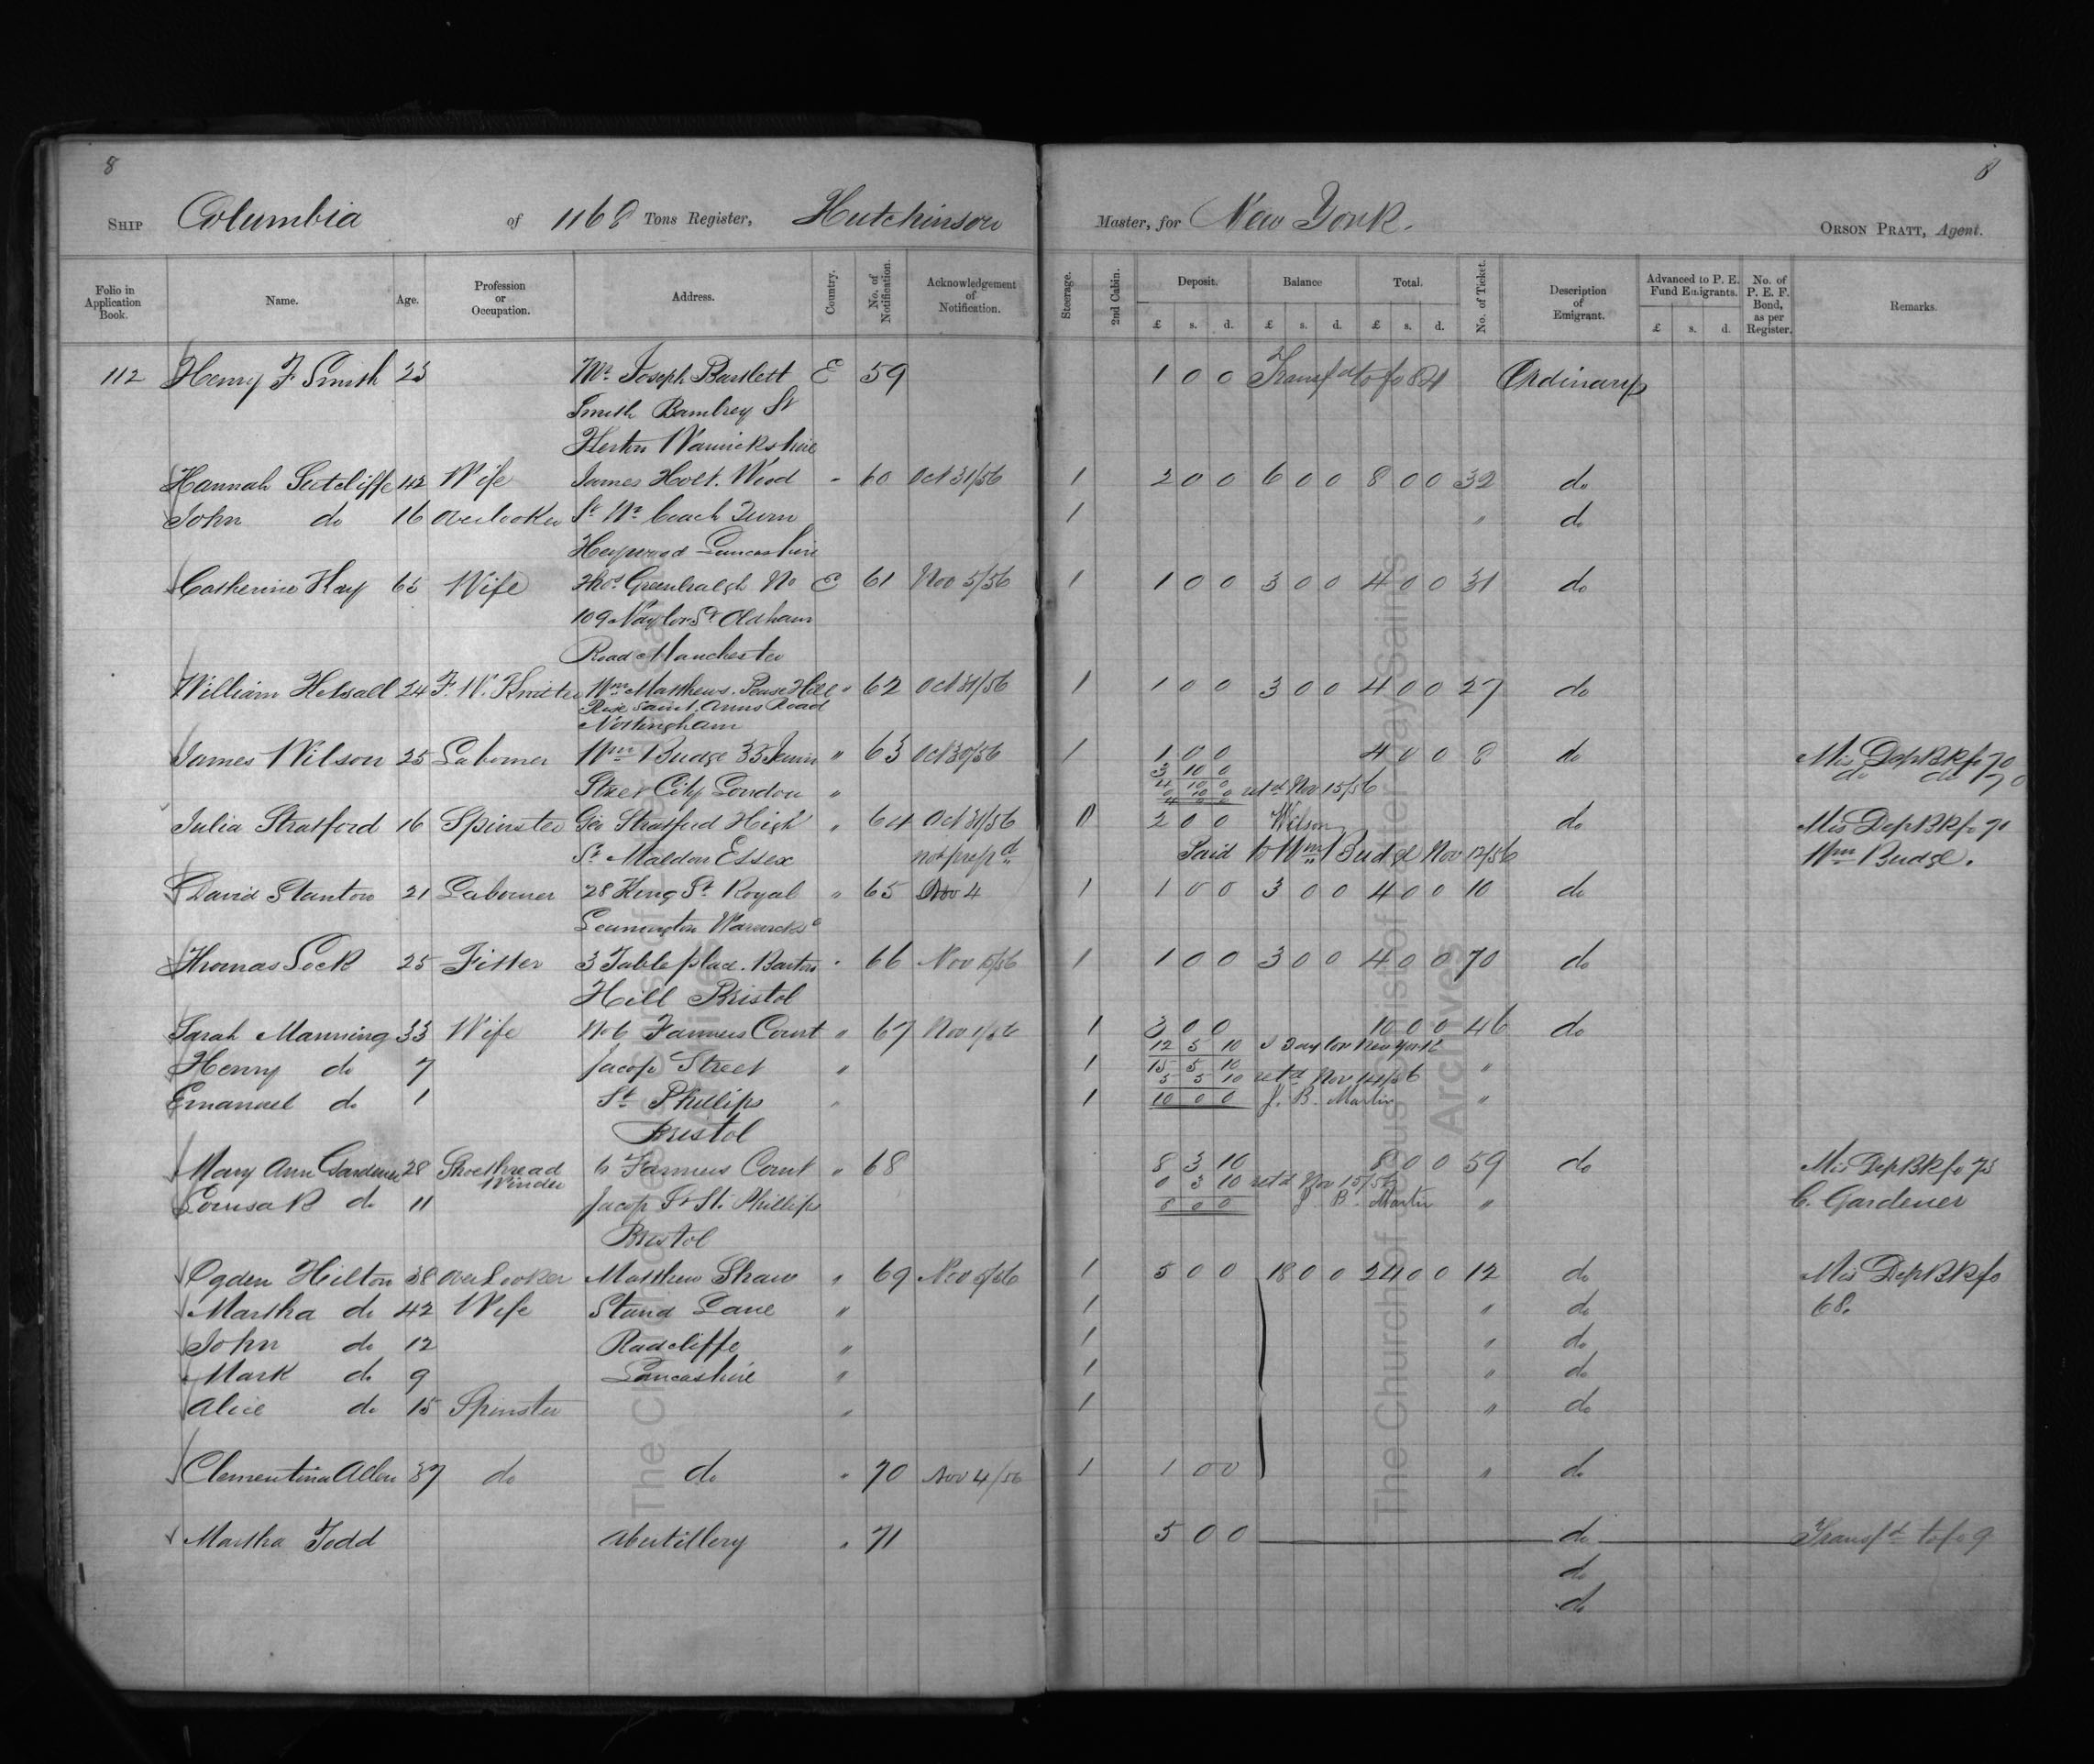 8 8
SHIP Columbia of 1168 Tons Register, Hutchinson Master, for New York. ORSON PRATT, Agent.
Folio in Application Book. Name. Age. Profession or Occupation. Address. Country. No. of Notification. Acknowledgement of Notification. Steerage. 2nd Cabin. Deposit. Balance Total. No. of Ticket. Description of Emigrant. Advanced to P. E. Fund Emigrants. No. of P. E. F. Bond, as per Register. Remarks.
£ s. d. £ s. d. £ s. d. £ s. d.
112 Henry F Smith 23 Mr. Joseph Bartlett E 59 1 0 0 Transfd to fo 84 Ordinary
Smith St
Warwickshire
Hannah Sutcliffe 42 Wife James Holt. Wood " 60 Oct 31/56 1 2 0 0 6 0 0 8 0 0 32 do
John do 16 Overlooker St Nr Coach Turn 1 " do
Heywood Lancashire
Catherine Hay 65 Wife Thos Greenhalgh No E 61 Nov 5/56 1 1 0 0 3 0 0 4 0 0 31 do
109 Naylor St Oldham
Road Manchester
William Helsall 24 F. W. Knitter Wm Matthews. Pease Hill " 62 Oct 31/56 1 1 0 0 3 0 0 4 0 0 27 do
Rise Saint Anns Road
Nottingham
James Wilson 25 Labourer Wm Budge 35 Jewin " 63 Oct 30/56 1 1 0 0 4 0 0 8 do Mis Dep Bk fo 70
3 10 0 do do 70
Street City London " 4 10 0
0 10 0 retd Nov 15/56
4 0 0
Julia Stratford 16 Spinster Geo Stratford High " 64 Oct 31/56 2 0 0 Wilson do Mis Dep Bk fo 71
St Maldon Essex not prepd Paid to Wm Budge Nov 12/56 Wm Budge.
David Stanton 21 Labourer 28 King St Royal " 65 Nov 4 1 1 0 0 3 0 0 4 0 0 10 do
Leamington Warwicks
Thomas Lock 25 Fitter 3 Table place. Barton " 66 Nov 1 1 0 0 3 0 0 4 0 0 70 do
Hill Bristol
Sarah Manning 33 Wife No 6 Farmers Court " 67 Nov 1/56 1 3 0 0 10 0 0 46 do
12 5 10 J Taylor New York
Henry do 7 Jacop Street " 1 15 5 10 "
5 5 10 retd Nov 14/56
Emanuel do 1 St. Phillips " 1 10 0 0 J. B. Martin "
Bristol
Mary Ann Gardener 28 Shoethread Winder 6 Farmers Court " 68 8 3 10 8 0 0 59 do Mis Dep Bk fo 73
0 3 10 retd Nov 15/56
Louisa B do 11 Jacop St St. Phillips 8 0 0 J. B. Martin " C. Gardener
Bristol
Ogden Hilton 38 Overlooker Matthew Shaw " 69 Nov 5/56 1 5 0 0 18 0 0 24 0 0 12 do Mis Dep Bk fo
Martha do 42 Wife Stand Lane " 1 " do 68.
John do 12 Radcliffe " 1 " do
Mark do 9 Lancashire " 1 " do
Alice do 15 Spinster " 1 " do
Clementina Allen 37 do do " 70 Nov 4/56 1 1 0 0 " do
Martha Todd Abertillery " 71 5 0 0 do Transfd to fo 9
do
do
The Church of Jesus Christ of Latter-day Saints
Archives